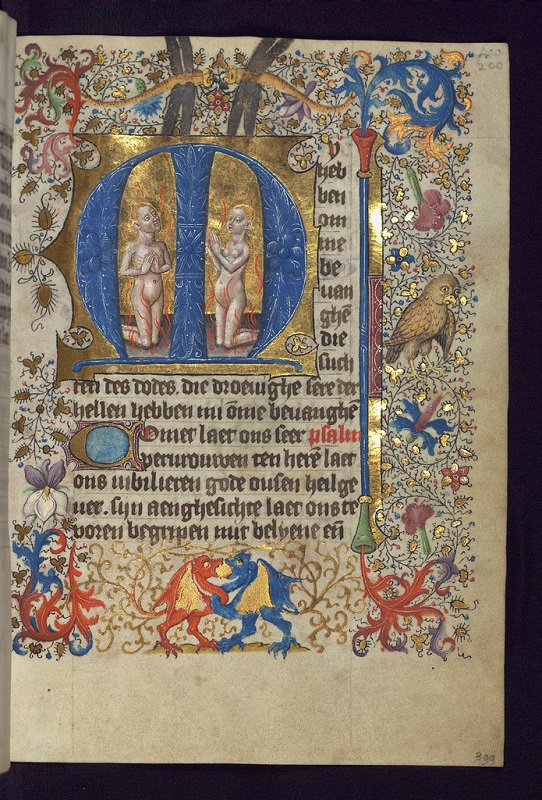 200
My
heb
ben
om
me
be
uan
ghē
die
such
ten des dodes. die droeuighe sere der
hellen hebben mi ōme beuanghē
Comet laet ons seer psalm
verurouwen ten herē laet
ons iubilieren gode onsen heilge
uer. sijn aenghesichte laet ons te
voren begripen mit belyene eñ
399